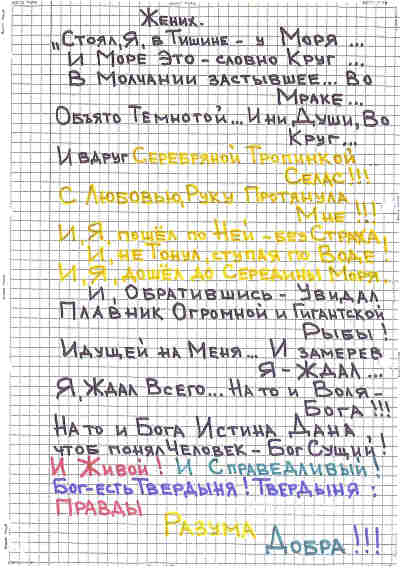 Жених.
„Стоял, Я, в Тишине - у Моря ...
И Море Это - словно Круг ...
В Молчании застывшее... Во
Мраке ...
Объято Темнотой... И ни Души, Во
Круг ...
И вдруг Серебряной Тропинкой
Селас!!!
С Любовью, Руку Протянула
Мне !!!
И, Я, пошёл по Ней - без Страха!
И, не Тонул, ступая по Воде!
И, Я, дошёл до Середины Моря.
И, Обратившись - Увидал
Плавник Огромной и Гигантской
Рыбы!
Идущей на Меня... И замерев
Я - Ждал ...
Я, Ждал Всего... На то и Воля -
Бога !!!
На то и Бога Истина Дана,
чтоб понял Человек - Бог Сущий!
И Живой! И Справедливый!
Бог - есть Твердыня! Твердыня:
Правды
Разума
Добра!!!